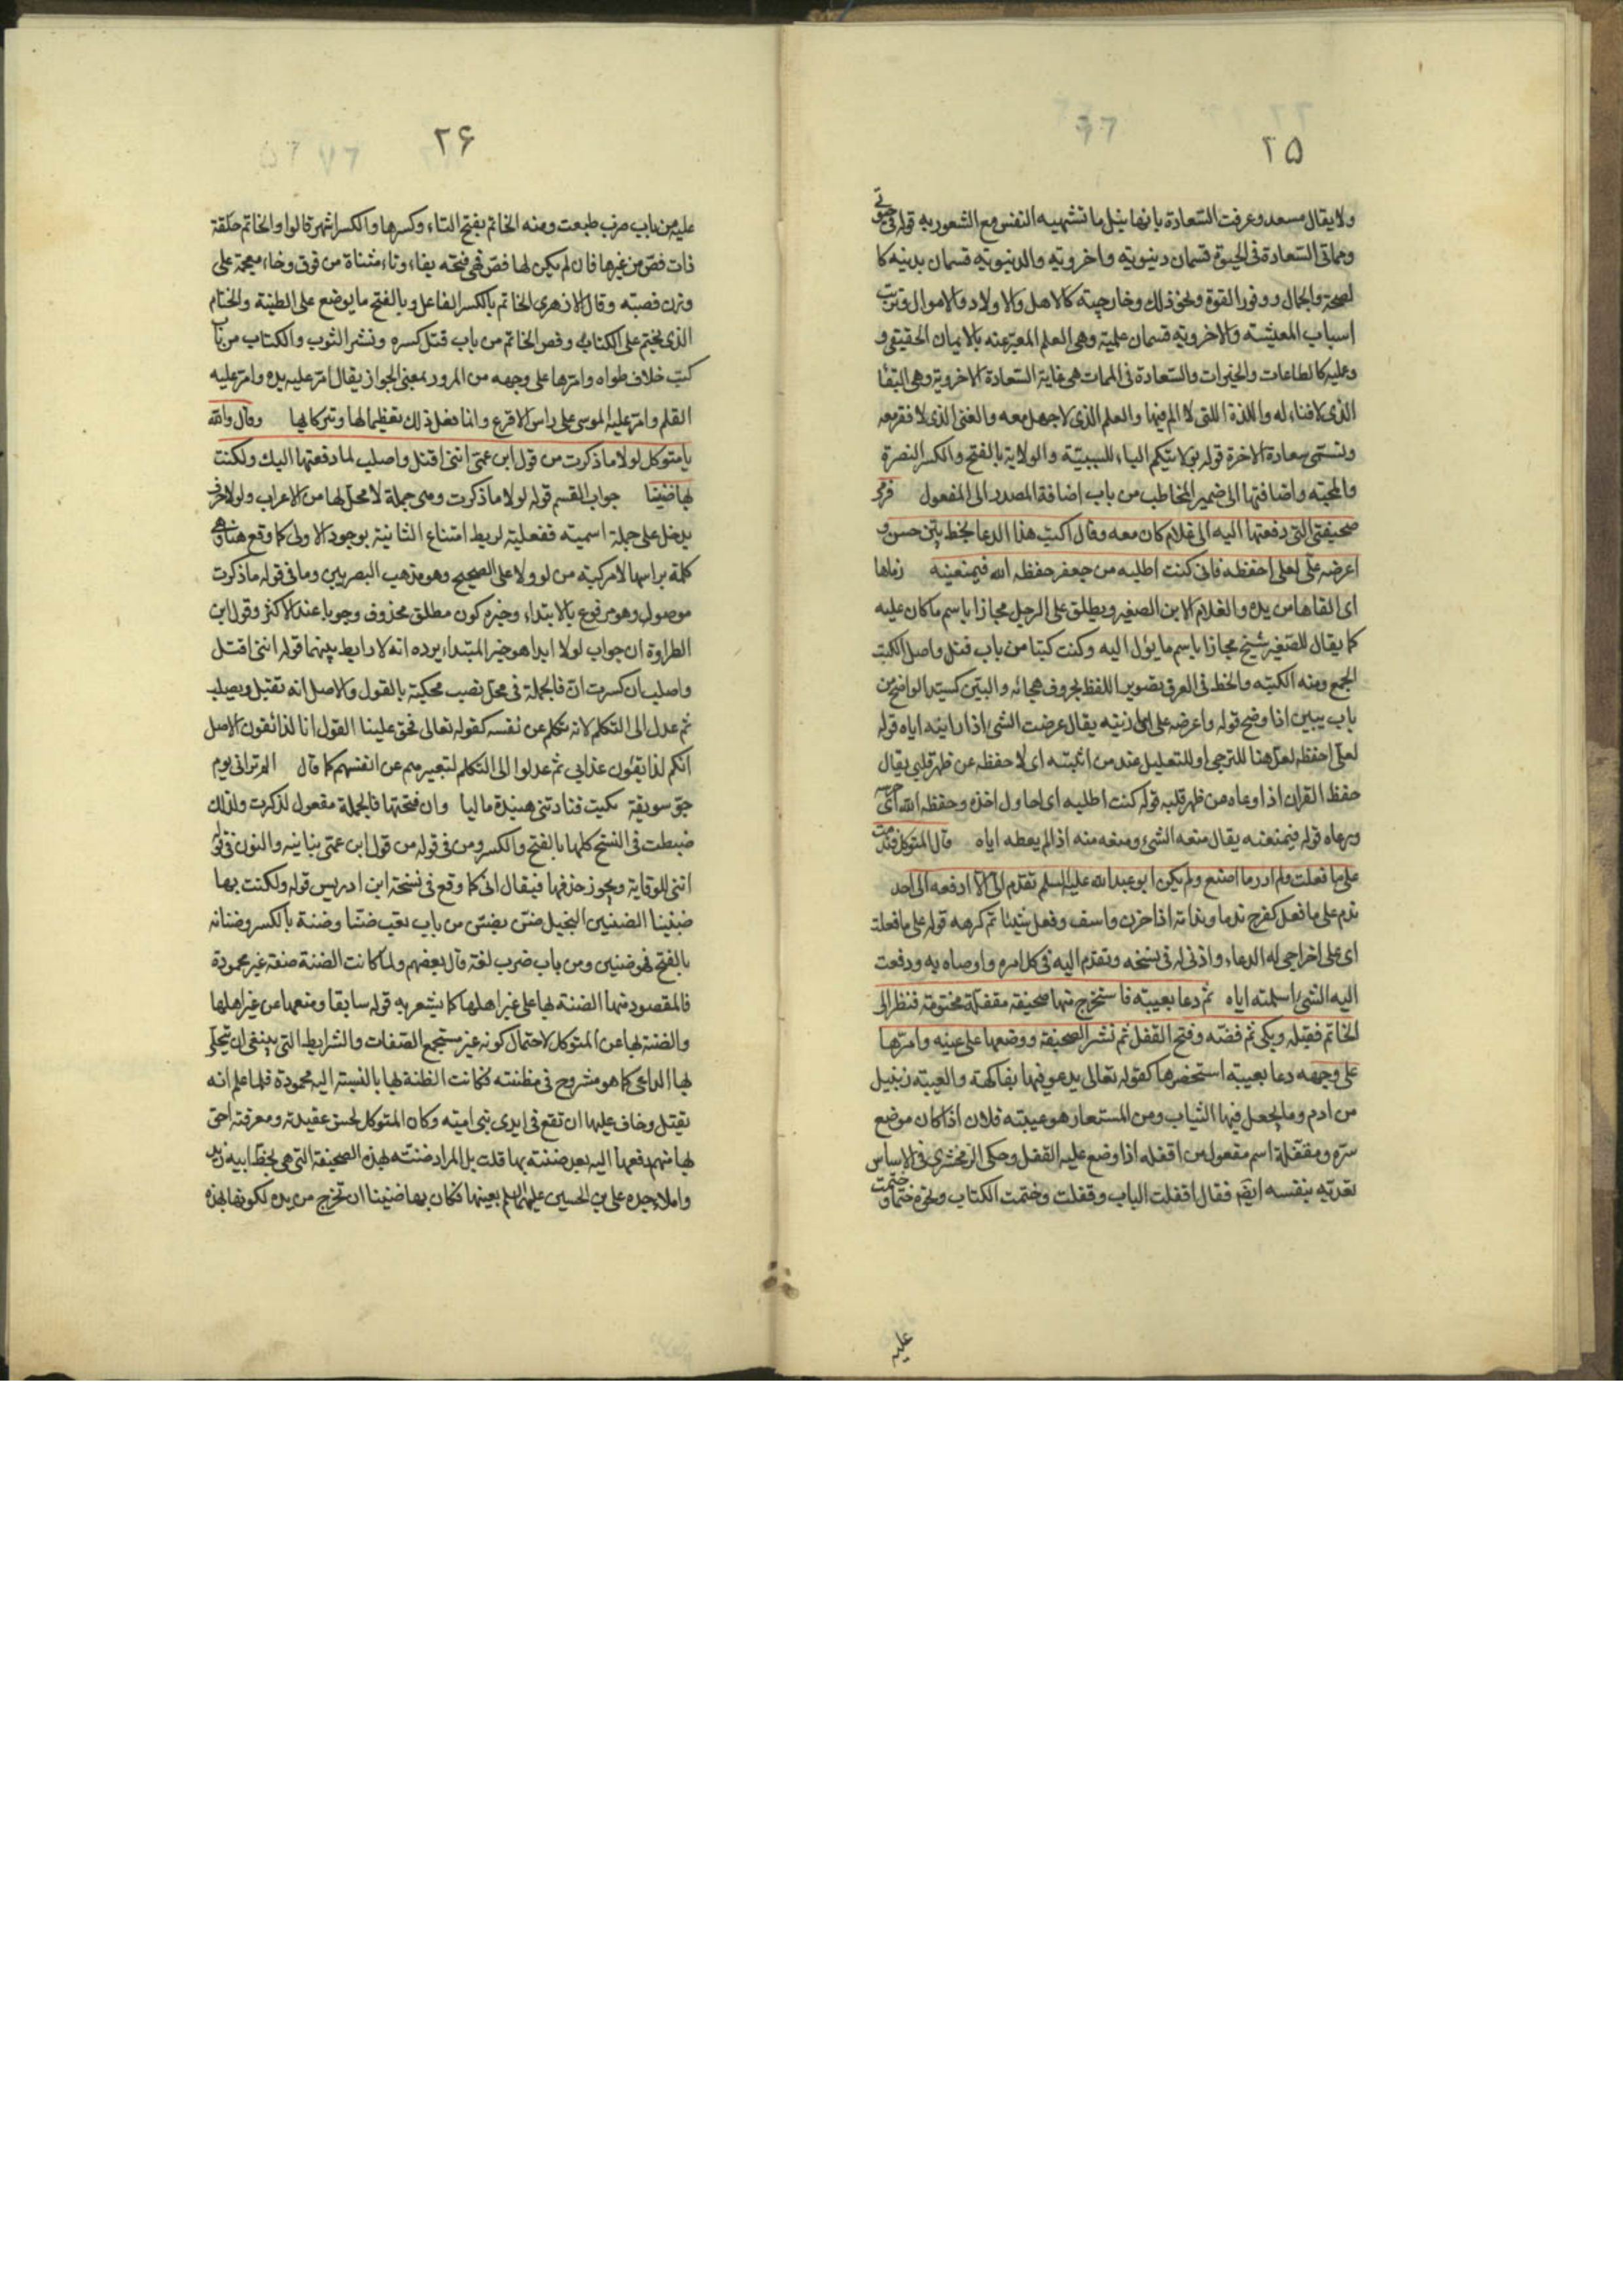 ٢٥
ولا يقال مسعد وعرفت السّعادة بانها نيل ما تشتهيه النفس مع الشعور به قوله فى حيوتى
ومماتى السّعادة فى الحيوة قسمان دنيوية واخروية والدنيوية قسمان بدنية كا
لصحة والجمال ووفور القوة ونحو ذلك وخارجية كالاهل والاولاد والاموال وترتب
اسباب المعيشته والاخروية قسمان علمية وهى العلم المعبّر عنه بالايمان الحقيقى و
وعليه كالطاعات والخيرات والسّعادة فى الممات هى غاية السّعادة الاخروية وهى البقا
الذى لا فناء له واللذة اللتى لا الم فيها والعلم الذى لا جهل معه والغنى الذى لا فقر معه
وتسمّى سعادة الاخرة قوله بولايتكم الباء للسببيّة والولاية بالفتح والكسر النصرة
والمحبّه واضافتها الى ضمير المخاطب من باب اضافة المصدر الى المفعول فرمى
صحيفتى التى دفعتها اليه الى غلام كان معه وقال اكتب هذا الدعا بخط بيّن حسن و
اعرضه علىّ لعلى احفظه فانى كنت اطلبه من جعفر حفظه الله فيمنعنيه رماها
اى القاها من يده والغلام الابن الصغير ويطلق على الرجل مجازا باسم ما كان عليه
كما يقال للصّغير شيخ مجازا باسم ما يؤل اليه وكتب كتبا من باب قتل واصل الكتب
الجمع ومنه الكتبه والخط فى العرف تصوير اللفظ بحروف هجائه والبيّن كسيّد الواضح من
باب يبين اذا وضح قوله واعرضه علىّ اى ارنيه يقال عرضت الشئ اذا رايته اياه قوله
لعلّى احفظه لعلّ هنا للترجى او للتعليل عند من اثبته اى لاحفظه عن ظهر قلبى يقال
حفظ القران اذا وعاه من ظهر قلبه قوله كنت اطلبه اى احاول اخذه وحفظه الله اى حرسه
ورعاه قوله فيمنعنيه يقال منعه الشئ ومنعه منه اذا لم يعطه اياه قال المتوكل فندمت
على ما فعلت ولم ادر ما اصنع ولم يكن ابو عبد الله عليه السلم تقدّم الىّ الّا ادفعه الى احد
ندم على ما فعل كفرح ندما وندامة اذا حزن واسف وفعل شيئا ثم كرهه قوله على ما فعلت
اى على اخراجى له الدعاء واذنى له فى نسخه وتقدّم اليه فى كذا امره واوصاه به ودفعت
اليه الشئ اسلمته اياه ثم دعا بعيبته فاستخرج منها صحيفة مقفلة مختومة فنظر الى
الخاتم فقبّله وبكى ثم فضّه وفتح القفل ثم نشر الصحيفة ووضعها على عينه وامرّها
على وجهه دعا بعيبته استحضرها كقوله تعالى يدعو فيها بفاكهة والعيبته زنبيل
من ادم وما يجعل فيها الثياب ومن المستعار هو عيبته فلان اذا كان موضع
سرّه ومقفلة اسم مفعول من اقفله اذا وضع عليه القفل وحكى الزمخشرى فى الاساس
تعديّه بنفسه ايضا فقال اقفلت الباب وقفلت وختمت الكتاب ونحوه ختما وختمت
عليه
٢۶
عليه من باب ضرب طبعت ومنه الخاتم بفتح التاء وكسرها والكسر اشهر قالوا والخاتم حلقة
ذات فصّ من غيرها فان لم يكن لها فصّ فهى فتخه بفاء وتاء مثناة من فوق وخاء معجمة على
وزن قصبته وقال الازهرى الخاتم بالكسر الفاعل وبالفتح ما يوضع على الطينة والختام
الذى يختم على الكتاب وفص الخاتم من باب قتل كسره ونشر الثوب والكتاب من باب
كتب خلاف طواه وامرّها على وجهه من المرور بمعنى الجواز يقال امرّ عليه يده وامرّ عليه
القلم وامرّ عليه الموسى على راس الاقرع وانما فعل ذلك تعظيما لها وتبركا بها وقال والله
يا متوكل لولا ما ذكرت من قول ابن عمّى اننى اقتل واصلب لما دفعتها اليك ولكنت
بها ضنينا جواب القسم قوله لولا ما ذكرت وهى جملة لا محلّ لها من الاعراب ولولا حرف
يدخل على جملة اسمية ففعلية لربط امتناع الثانية بوجود الاولى كما وقع هنا وهى
كلمة براسها لا مركبة من لو ولا على الصحيح وهو مذهب البصريين وما فى قوله ما ذكرت
موصول وهو مرفوع بالابتداء وخبره كون مطلق محذوف وجوبا عند الاكثر وقول ابن
الطراوة ان جواب لولا ابدا هو خبر المبتداء يرده انه لا رابط بينهما قوله اننى اقتل
واصلب ان كسرت انّ فالجملة فى محلّ نصب محكية بالقول والاصل انه تقتل ويصلب
ثم عدل الى التكلّم لانه متكلم عن نفسه كقوله تعالى فحقّ علينا القول انا لذائقون الاصل
انكم لذايقون عذابى ثم عدلوا الى التكلم لتعبيرهم عن انفسهم كما قال الم ترانى يوم
جوّ سويقة بكيت فنادتنى هنيدة ماليا وان فتحتها فالجملة مفعول لذكرت ولذلك
ضبطت فى النسخ كلها بالفتح والكسر ومن فى قوله من قول ابن عمّى بيانيه والنون فى قوله
اننى للوقاية ويجوز حذفها فيقال انى كما وقع فى نسخة ابن ادريس قوله ولكنت بها
ضنينا الضنين البخيل ضنّ يضنّ من باب تعب ضنّا وضنة بالكسر وضنانه
بالفتح فهو ضنين ومن باب ضرب لغة قال بعضهم ولما كانت الضنة صفة غير محمودة
فالمقصود منها الضنة بها على غير اهلها كما يشعر به قوله سابقا ومنعها عن غير اهلها
والضنة بها عن المتوكل لاحتمال كونه غير مستجمع الصّفات والشرايط التى ينبغى ان يتحلّى
بها الداعى كما هو مشروح فى مظنته فكانت الظنة بها بالنسبة اليه محمودة فلما علم انه
يقتل وخاف عليها ان تقع فى ايدى بنى اميّه وكان المتوكل لحسن عقيدته ومعرفته احق
بها منهم دفعها اليه بعد ضنته بها قلت بل المراد ضنّته بهذه الصحيفة التى هى بخطّ ابيه زيد
واملاء جده على بن الحسين عليهما السلم بعينها فكان بها ضنينا ان تخرج من يده لكونها بهذه